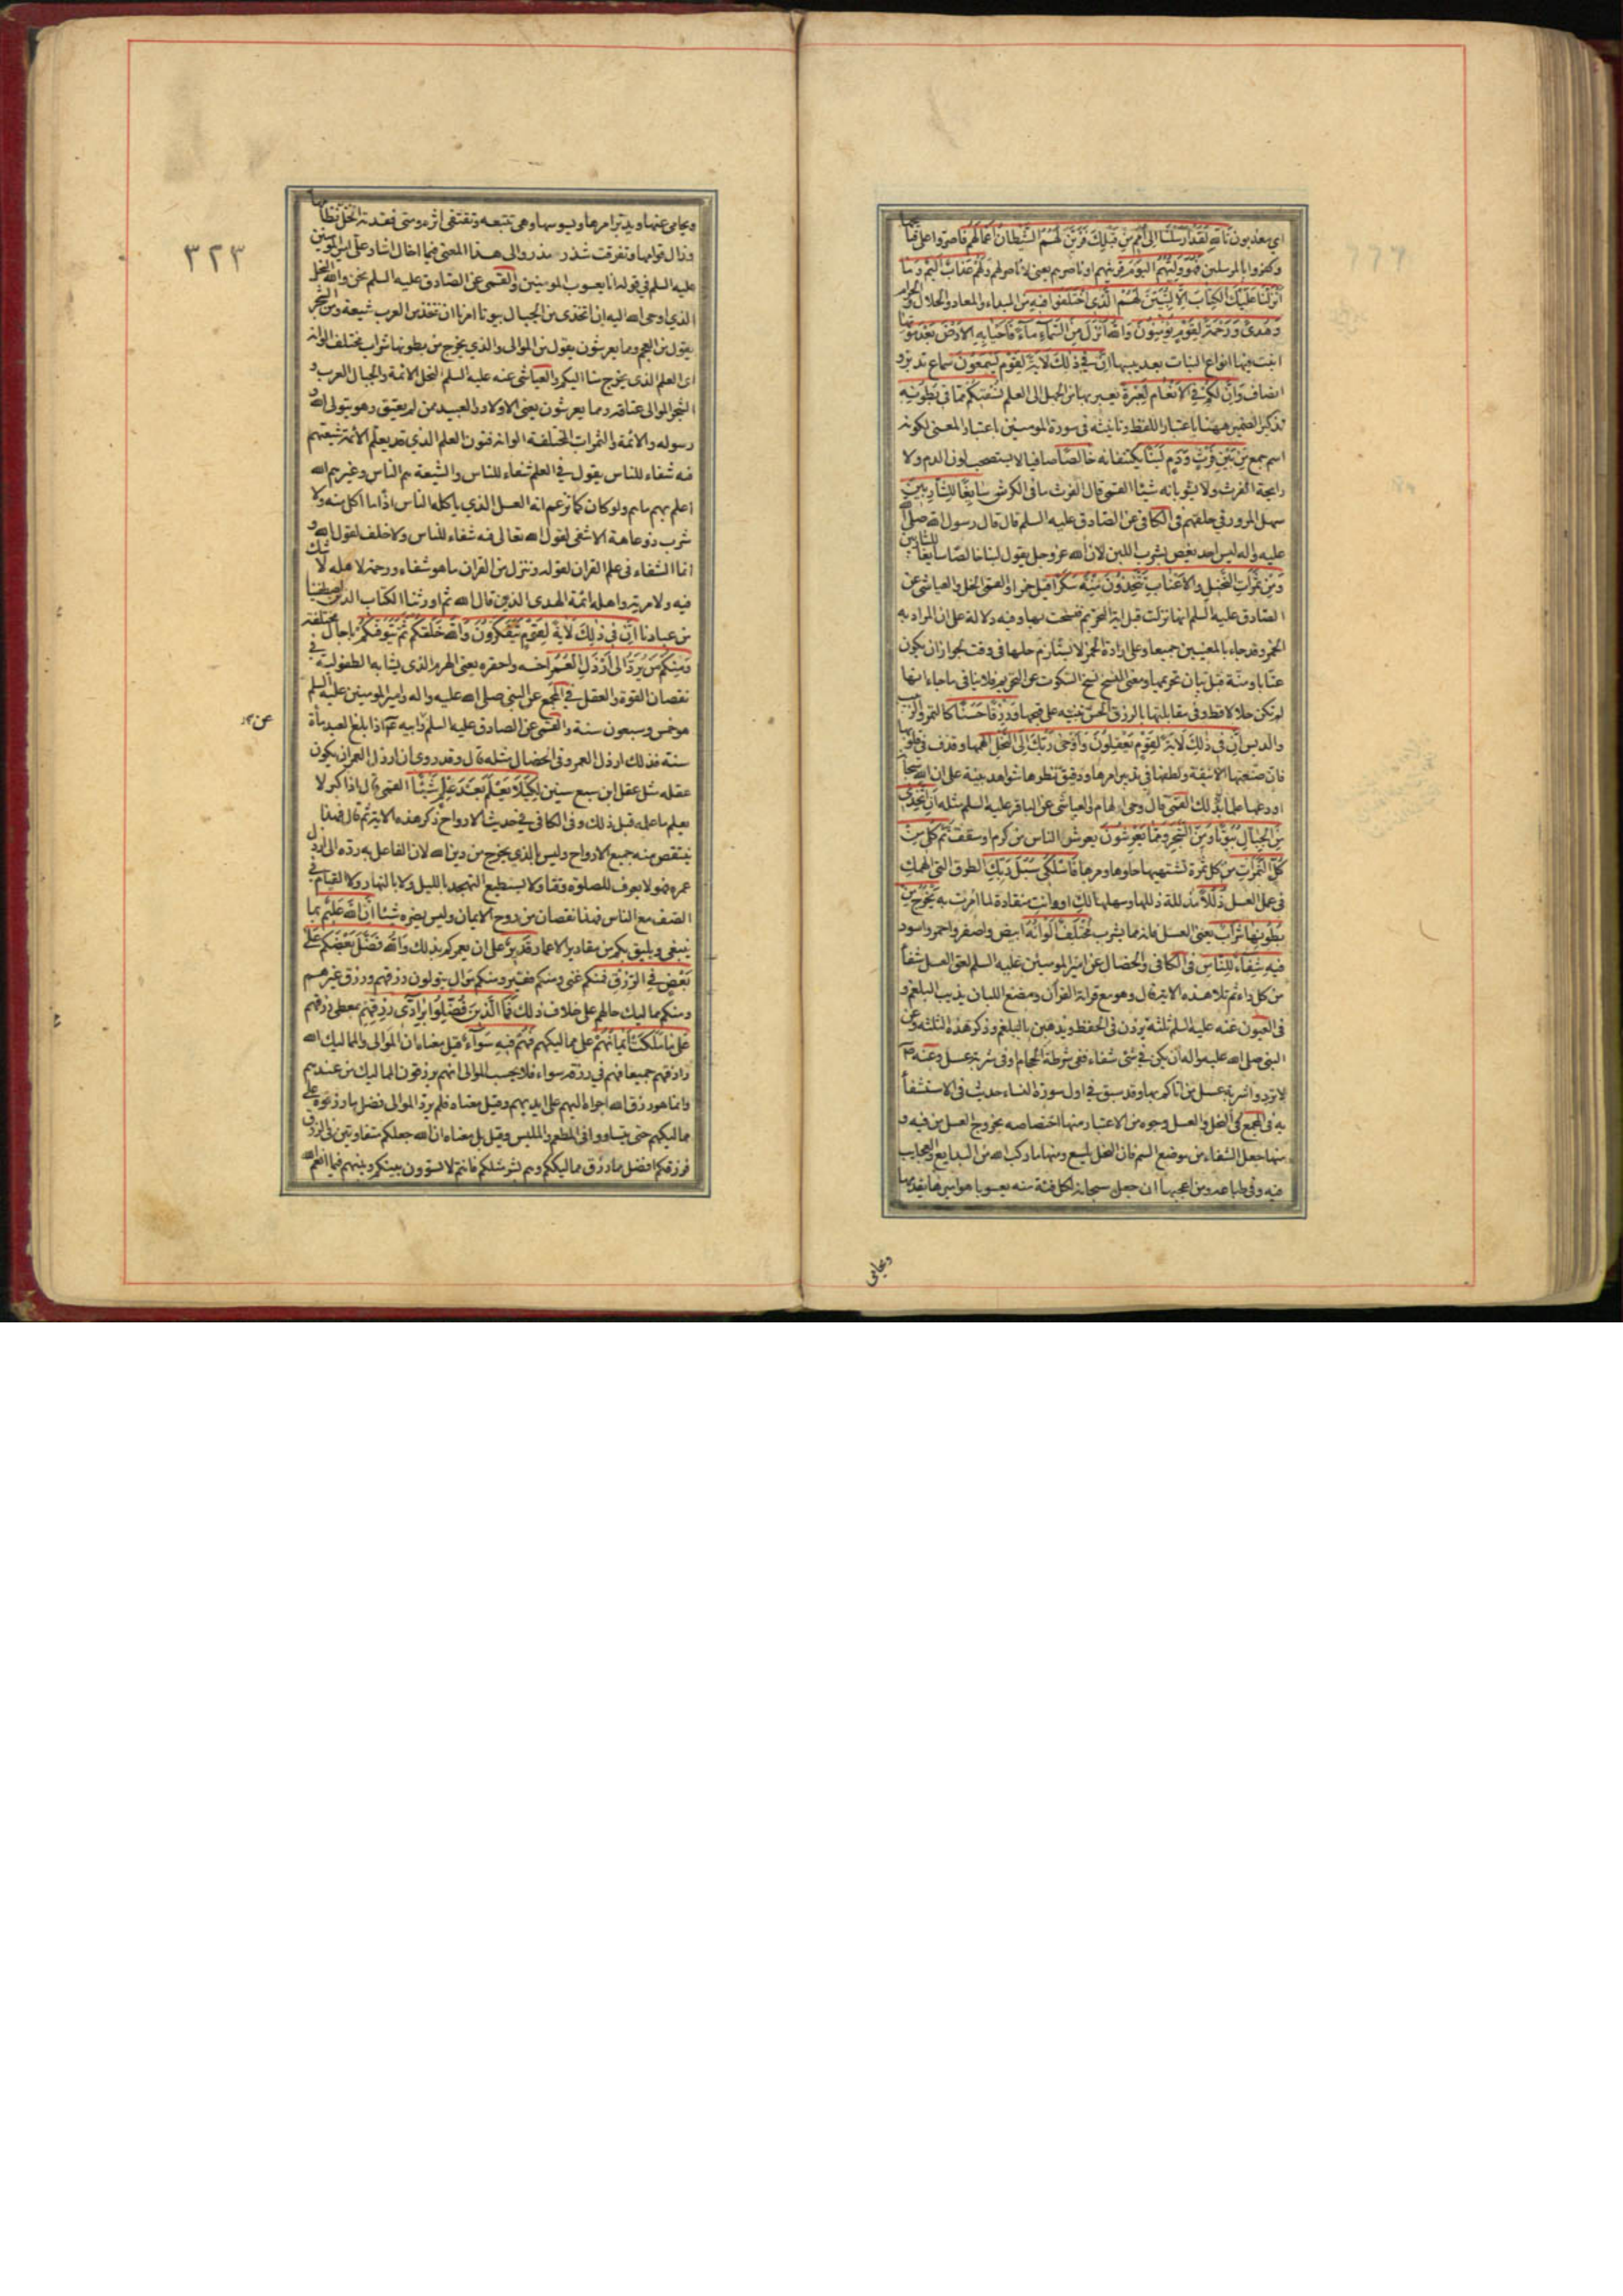 اي معذبون تَاللهِ لَقَدْ اَرْسَلْنَا اِلىٰ اُمَمٍ مِنْ قَبْلِكَ فَزَيَّنَ لَهُمُ الشَّيْطَانُ اَعْمَالَهُمْ فاصروا على قبايحها
وكفروا بالمرسلين فَهُوَ وَلِيُّهُمُ الْيَوْمَ قرينهم او ناصرهم يعني لا ناصر لهم وَلَهُمْ عَذَابٌ اَلِيمٌ وَمَا
اَنْزَلْنَا عَلَيْكَ الْكِتَابَ اِلَّا لِتُبَيِّنَ لَهُمُ الَّذِي اخْتَلَفُوا فِيهِ من المبداء والمعاد والحلال والحرام
وَهُدىً وَرَحْمَةً لِقَوْمٍ يُؤْمِنُونَ وَاللهُ اَنْزَلَ مِنَ السَّمَاءِ مَاءً فَاَحْيَا بِهِ الْاَرْضَ بَعْدَ مَوْتِهَا
انبت فيها انواع النبات بعد يبسها اِنَّ فِي ذٰلِكَ لَاٰيَةً لِقَوْمٍ يَسْمَعُونَ سماع تدبر و
انصاف وَاِنَّ لَكُمْ فِي الْاَنْعَامِ لَعِبْرَةً يعبر بها من الجهل الى العلم نُسْقِيكُمْ مِمَّا فِي بُطُونِهِ
تذكير الضمير ههنا باعتبار اللفظ وتانيثه في سورة المومنين باعتبار المعنى لكونه
اسم جمع مِنْ بَيْنِ فَرْثٍ وَدَمٍ لَبَنًا يكتنفانه خَالِصًا صافيا لا يستصحب لون الدم ولا
رايحة الفرث ولا يشوبانه شيئا القمي قال الفرث ما في الكرش سَائِغًا لِلشَّارِبِينَ
سهل المرور في حلقهم في الكافي عن الصادق عليه السلم قال قال رسول الله صلى الله
عليه واله ليس احد يغص بشرب اللبن لان الله عز وجل يقول لبنا خالصا سايغا للشاربين
وَمِنْ ثَمَرَاتِ النَّخِيلِ وَالْاَعْنَابِ تَتَّخِذُونَ مِنْهُ سَكَرًا قيل خمرا والقمي الخل والعياشي عن
الصادق عليه السلم انها نزلت قبل اية التحريم فنسخت بها وفيه دلالة على ان المراد به
الخمر وقد جاء بالمعنيين جميعا وعلى ارادة الخمر لا يستلزم حلها في وقت لجواز ان يكون
عتابا ومنة قبل بيان تحريمها ومعنى النسخ نسخ السكوت عن التحريم فلا ينافي ما جاء انها
لم تكن حلالا قط وفي مقابلتها بالرزق الحسن تنبيه على قبحها وَرِزْقًا حَسَنًا كالتمر والزبيب
والدبس اِنَّ فِي ذٰلِكَ لَاٰيَةً لِقَوْمٍ يَعْقِلُونَ وَاَوْحىٰ رَبُّكَ اِلَى النَّحْلِ الهمها وقذف في قلوبها
فان صنعتها الانيقة ولطفها في تدبير امرها ودقيق نظرها شواهد بينة على ان الله سبحانه
اودعها علما بذلك القمي قال وحي الهام والعياشي عن الباقر عليه السلم مثله اَنِ اتَّخِذِي
مِنَ الْجِبَالِ بُيُوتًا وَمِنَ الشَّجَرِ وَمِمَّا يَعْرِشُونَ يعرش الناس من كرم او سقف ثُمَّ كُلِي مِنْ
كُلِّ الثَّمَرَاتِ من كل ثمرة تشتهيها حلوها ومرها فَاسْلُكِي سُبُلَ رَبِّكِ الطرق التي الهمك
في عمل العسل ذُلُلًا مذللة ذللها وسهلها لك او وانت منقادة لما امرت به يَخْرُجُ مِنْ
بُطُونِهَا شَرَابٌ يعني العسل فانه مما يشرب مُخْتَلِفٌ اَلْوَانُهُ ابيض واصفر واحمر واسود
فِيهِ شِفَاءٌ لِلنَّاسِ في الكافي والخصال عن امير المومنين عليه السلم لعق العسل شفاء
من كل داء ثم تلا هذه الاية قال وهو مع قراءة القران ومضغ اللبان يذيب البلغم و
في العيون عنه عليه السلم ثلثة يزدن في الحفظ ويذهبن بالبلغم وذكر هذه الثلثة وعن
النبي صلى الله عليه واله ان يكن في شئ شفاء ففي شرطة الحجام او في شربة عسل وعنه ع
لا تردوا شربة عسل من اتاكم بها وقد سبق في اول سورة النساء حديث في الاستشفاء
به في المجمع في النحل والعسل وجوه من الاعتبار منها اختصاصه بخروج العسل من فيه و
منها جعل الشفاء من موضع السم فان النحل يلسع ومنها ما ركب الله من البدايع والعجايب
فيه وفي طباعه ومن اعجبها ان جعل سبحانه لكل فئة منه يعسوبا هو اميرها يقدمها
ويحامي
ويحامي عنها ويدبر امرها ويسوسها وهي تتبعه وتقتفي اثره ومتى فقدته انحل نظامها
وزال قوامها وتفرقت شذر مذر والى هذا المعنى فيما اخال اشار علي امير المومنين
عليه السلم في قوله انا يعسوب المومنين والقمي عن الصادق عليه السلم نحن والله النحل
الذي اوحى الله اليه ان اتخذي من الجبال بيوتا امرنا ان نتخذ من العرب شيعة ومن الشجر
يقول من العجم ومما يعرشون يقول من الموالي والذي يخرج من بطونها شراب مختلف الوانه
اي العلم الذي يخرج منا اليكم والعياشي عنه عليه السلم النحل الائمة والجبال العرب و
الشجر الموالي عتاقه ومما يعرشون يعني الاولاد والعبيد ممن لم يعتق وهو يتولى الله و
رسوله والائمة والثمرات المختلفة الوانه فنون العلم الذي قد يعلم الائمة شيعتهم
فيه شفاء للناس يقول في العلم شفاء للناس والشيعة هم الناس وغيرهم الله
اعلم بهم ما هم ولو كان كما تزعم انه العسل الذي ياكله الناس اذا ما اكل منه ولا
شرب ذو عاهة الا شفي لقول الله تعالى فيه شفاء للناس ولا خلف لقول الله و
انما الشفاء في علم القران لقوله وننزل من القران ما هو شفاء ورحمة لاهله لا شك
فيه ولا مرية واهله ائمة الهدى الذين قال الله ثم اورثنا الكتاب الذين اصطفينا
من عبادنا اِنَّ فِي ذٰلِكَ لَاٰيَةً لِقَوْمٍ يَتَفَكَّرُونَ وَاللهُ خَلَقَكُمْ ثُمَّ يَتَوَفّٰكُمْ باجال مختلفة
وَمِنْكُمْ مَنْ يُرَدُّ اِلىٰ اَرْذَلِ الْعُمُرِ اخسه واحقره يعني الهرم الذي يشابه الطفولية في
نقصان القوة والعقل في المجمع عن النبي صلى الله عليه واله وامير المومنين عليه السلم
هو خمس وسبعون سنة والقمي عن الصادق عليه السلم وابيه ع اذا بلغ العبد مأة
عن
سنة فذلك ارذل العمر وفي الخصال مثله قال وقد روي ان ارذل العمر ان يكون
عقله مثل عقل ابن سبع سنين لِكَيْلَا يَعْلَمَ بَعْدَ عِلْمٍ شَيْئًا القمي قال اذا كبر لا
يعلم ما علمه قبل ذلك وفي الكافي في حديث الارواح ذكر هذه الاية ثم قال فهذا
ينتقص منه جميع الارواح وليس بالذي يخرج من دين الله لان الفاعل به رده الى ارذل
عمره فهو لا يعرف للصلوة وقتا ولا يستطيع التهجد بالليل ولا بالنهار ولا القيام في
الصف مع الناس فهذا نقصان من روح الايمان وليس يضره شيئا اِنَّ اللهَ عَلِيمٌ بما
ينبغي ويليق بكم من مقادير الاعمار قَدِيرٌ على ان يعمركم بذلك وَاللهُ فَضَّلَ بَعْضَكُمْ عَلىٰ
بَعْضٍ فِي الرِّزْقِ فمنكم غني ومنكم فقير ومنكم موال يتولون رزقهم ورزق غيرهم
ومنكم مماليك حالهم على خلاف ذلك فَمَا الَّذِينَ فُضِّلُوا بِرَادِّي رِزْقِهِمْ بمعطي رزقهم
عَلىٰ مَا مَلَكَتْ اَيْمَانُهُمْ على مماليكهم فَهُمْ فِيهِ سَوَاءٌ قيل معناه ان الموالي والمماليك الله
رازقهم جميعا فهم في رزقه سواء فلا يحسب الموالي انهم يرزقون المماليك من عندهم
وانما هو رزق الله اجراه اليهم على ايديهم وقيل معناه فلم يرد الموالي فضل ما رزقوه على
مماليكهم حتى يتساووا في المطعم والملبس وقيل بل معناه ان الله جعلكم متفاوتين في الرزق
فرزقكم افضل مما رزق مماليككم وهم بشر مثلكم فانتم لا تسوون بينكم وبينهم فيما انعم الله
٣٢٣